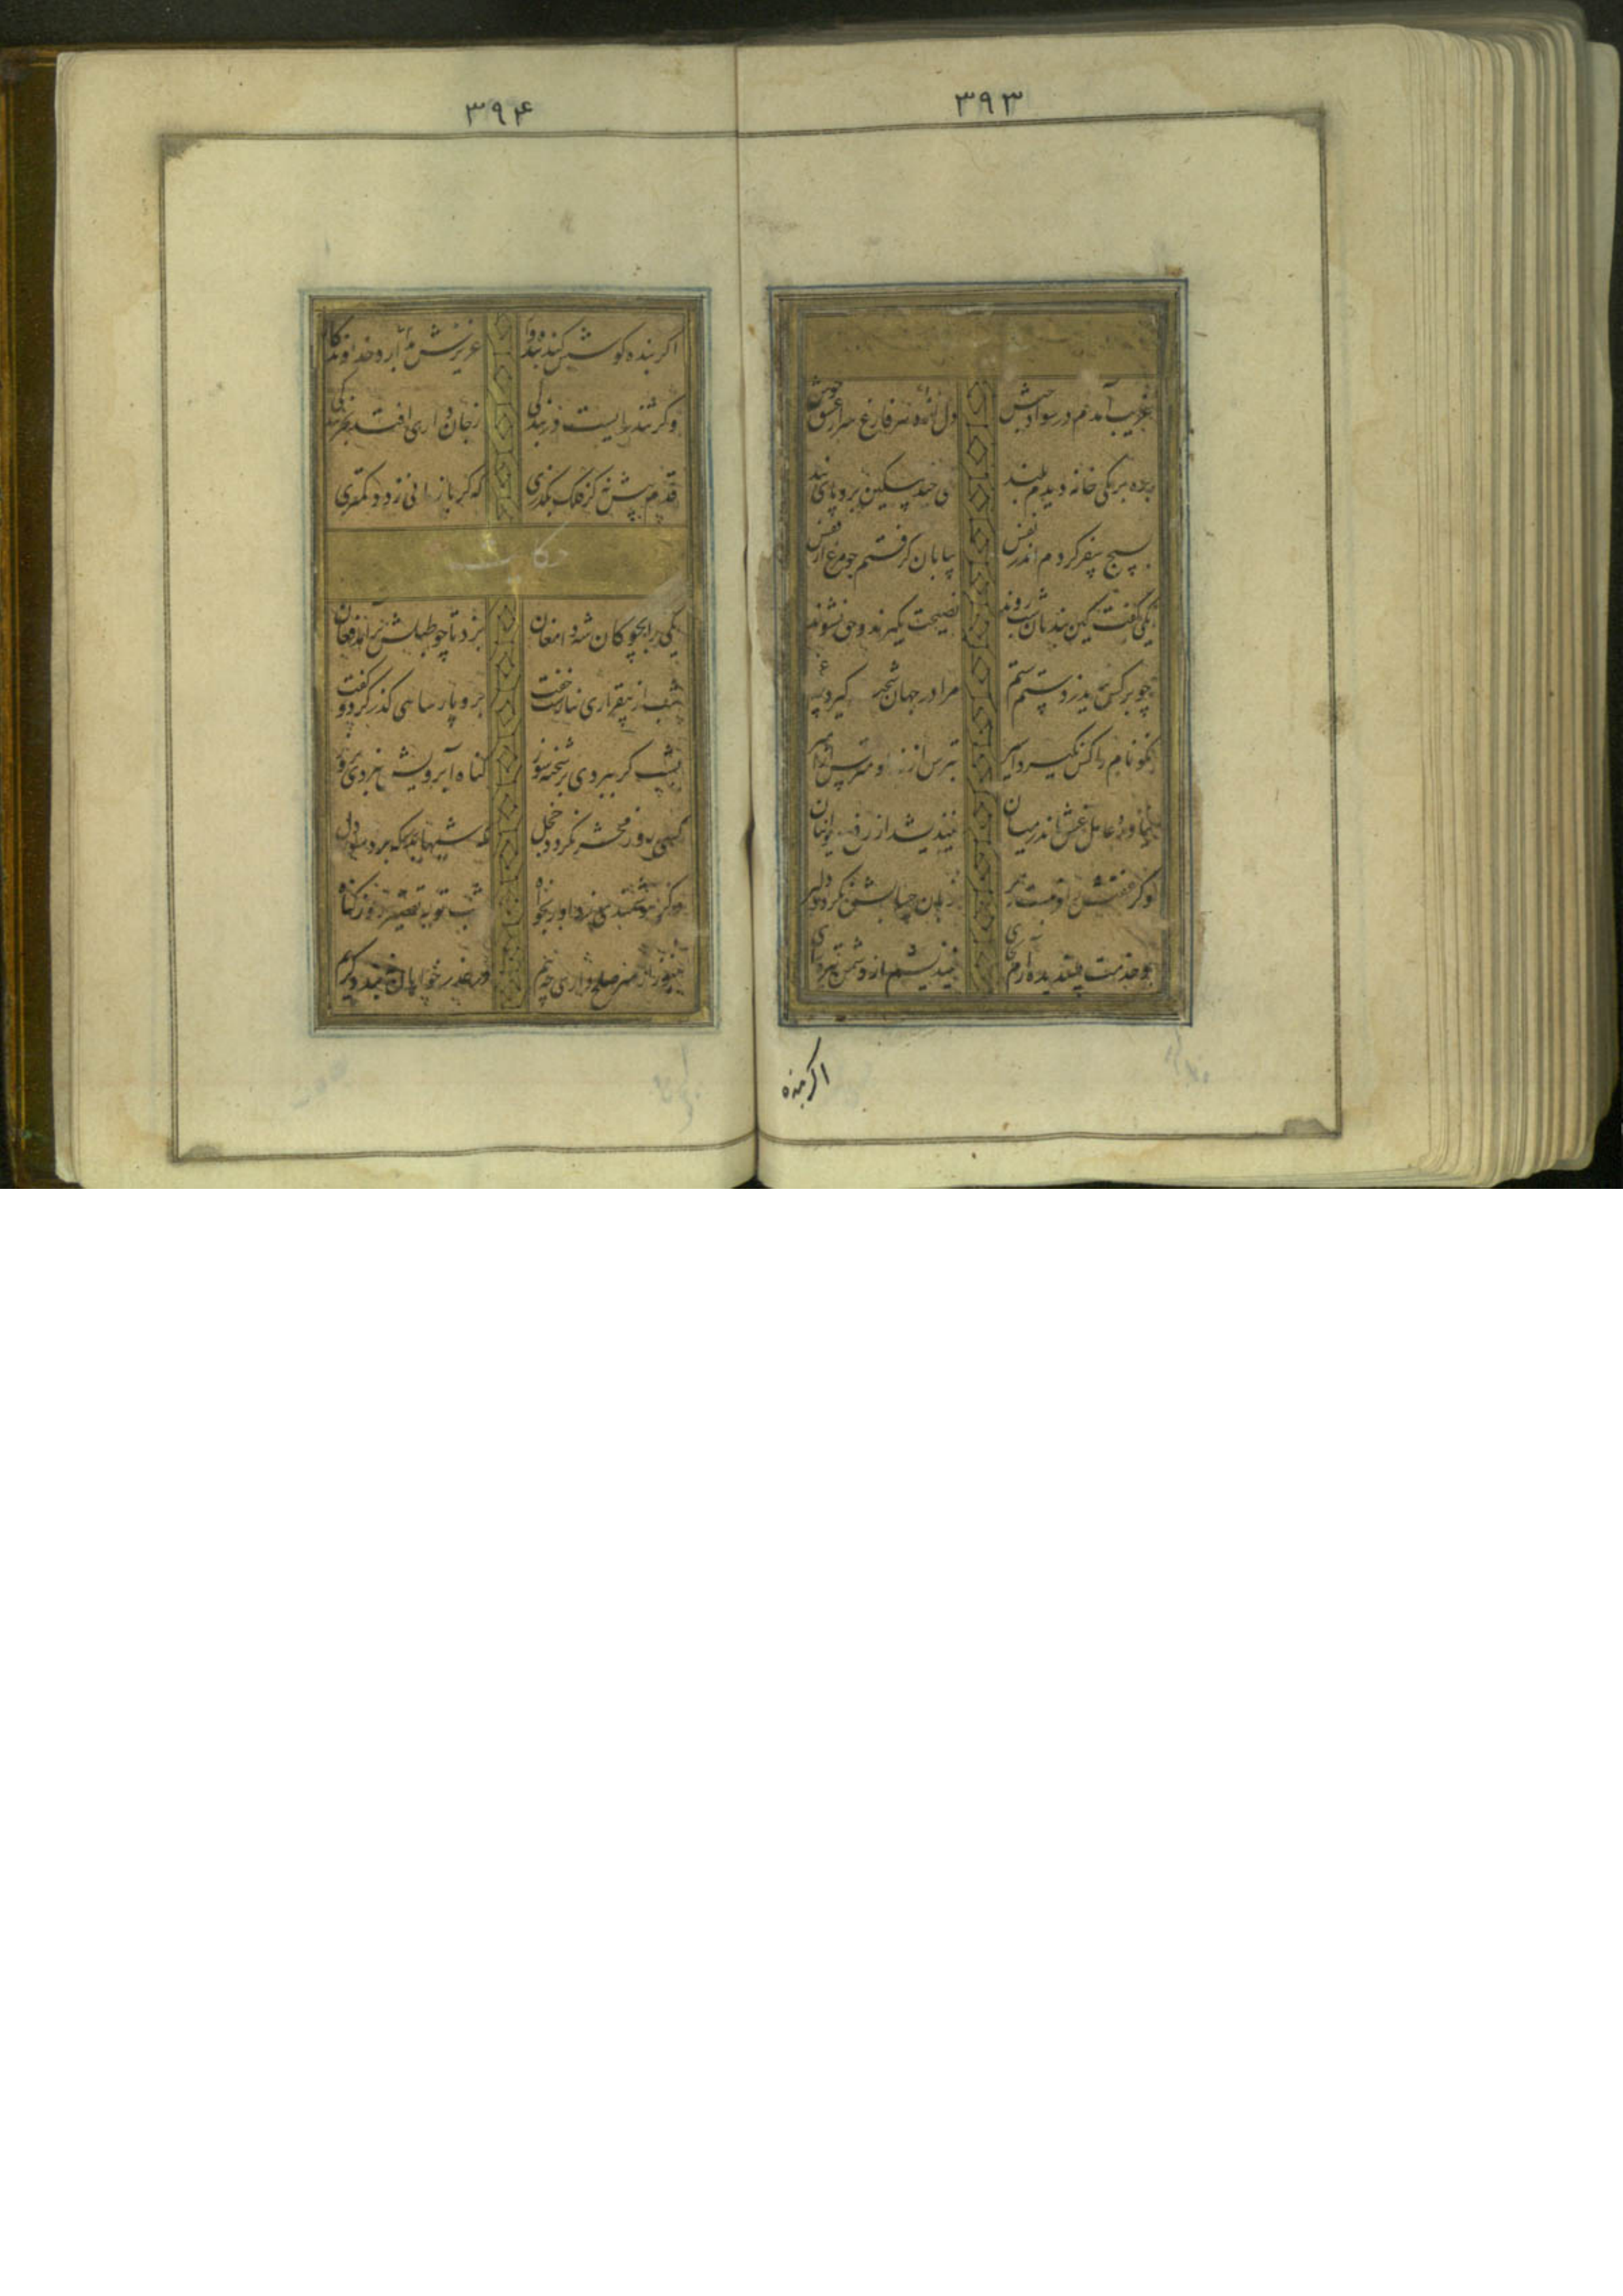 ۳۹۳
غریب آمدم در سواد حبش دل از دهر فارغ سر از عیش خوش
بره بر یکی خانه دیدم بلند تنی چند مسکین برو پای بند
بسیج سفر کردم اندر نفس بیابان گرفتم چو مرغ از قفس
یکی گفت کین بندیان شب روند نصیحت نگیرند و حق نشنوند
چو بر کس نیامد ز دستت ستم مرا در جهان شحنه گیرد چه غم
نکو نام را کس نگیرد اسیر بترس از خدا و مترس از امیر
نیاورده عامل غش اندر میان نیندیشد از رفع دیوانیان
وگر عفتش را فریبست زیر زبان حسابش نگردد دلیر
چو خدمت پسندیده آرم بجای نیندیشم از دشمن تیره رای
اگر بنده
۳۹۴
اگر بنده کوشش کند بنده وار عزیزش بدارد خداوندگار
وگر کند رایست در بندگی ز جان داری افتد بخربندگی
قدم پیش نه کز ملک بگذری که گر باز مانی ز دد کمتری
حکایت
یکی را بچوگان شه دامغان بزد تا چو طبلش برآمد فغان
شب از بیقراری نیارست خفت برو پارسایی گذر کرد و گفت
بشب گر ببردی بر شحنه سوز گناه آبرویش نبردی بروز
کسی روز محشر نگردد خجل که شبها بدرگه برد سوز دل
وگر هوشمندی ز داور بخواه شب توبه تقصیر روز گناه
هنوز از سر صلح داری چه بیم در عذر خواهان نبندد کریم